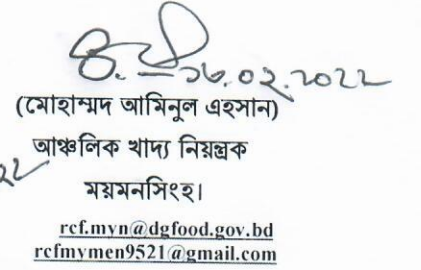 ১৬.০২.২০২২
(মোহাম্মদ আমিনুল এহসান)
আঞ্চলিক খাদ্য নিয়ন্ত্রক
ময়মনসিংহ।
rcf.myn@dgfood.gov.bd
rcfmymen9521@gmail.com